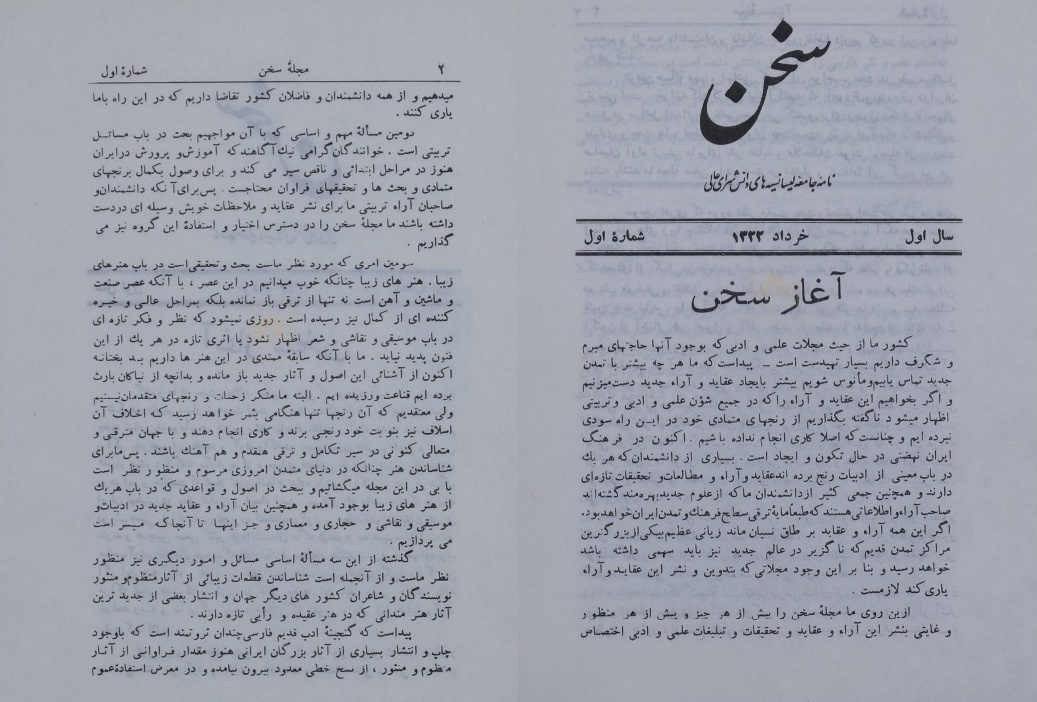 سخن
نامه جامعه لیسانسیه های دانش سرای عالی
سال اول خرداد ۱۳۲۲ شمارهٔ اول
آغاز سخن
کشور ما از حیث مجلات علمی و ادبی که بوجود آنها حاجتهای مبرم
و شگرف داریم بسیار تهیدست است ــ پیداست که ما هر چه بیشتر با تمدن
جدید تماس یابیم و مأنوس شویم بیشتر بایجاد عقاید و آراء جدید دست میزنیم
و اگر بخواهیم این عقاید و آراء را که در جمیع شؤن علمی و ادبی و تربیتی
اظهار میشود ناگفته بگذاریم از رنجهای متمادی خود در این راه سودی
نبرده ایم و چنانست که اصلا کاری انجام نداده باشیم . اکنون در فرهنگ
ایران نهضتی در حال تکون و ایجاد است . بسیاری از دانشمندان که هر یك
در باب معینی از ادبیات رنج برده اند عقاید و آراء و مطالعات و تحقیقات تازه ای
دارند و همچنین جمعی کثیر از دانشمندان ما که از علوم جدید بهره مند گشته اند
صاحب آراء و اطلاعاتی هستند که طبعاً مایهٔ ترقی سطح فرهنك و تمدن ایران خواهد بود.
اگر این همه آراء و عقاید بر طاق نسیان ماند زیانی عظیم بیکی از بزرگترین
مراکز تمدن قدیم که ناگزیر در عالم جدید نیز باید سهمی داشته باشد
خواهد رسید و بنا بر این وجود مجلاتی که بتدوین و نشر این عقاید و آراء
یاری کند لازمست .
ازین روی ما مجلهٔ سخن را بیش از هر چیز و پیش از هر منظور
و غایتی بنشر این آراء و عقاید و تحقیقات و تبلیغات علمی و ادبی اختصاص
۲ مجلهٔ سخن شمارهٔ اول
میدهیم و از همه دانشمندان و فاضلان کشور تقاضا داریم که در این راه باما
یاری کنند .
دومین مسألهٔ مهم و اساسی که با آن مواجهیم بحث در باب مسائل
تربیتی است . خوانندگان گرامی نیك آگاهند که آموزش و پرورش در ایران
هنوز در مراحل ابتدائی و ناقص سیر می کند و برای وصول بکمال برنجهای
متمادی و بحث ها و تحقیقهای فراوان محتاجست . پس برای آنکه دانشمندان و
صاحبان آراء تربیتی ما برای نشر عقاید و ملاحظات خویش وسیله ای در دست
داشته باشند ما مجلهٔ سخن را در دسترس اختیار و استفادهٔ این گروه نیز می
گذاریم .
سومین امری که مورد نظر ماست بحث و تحقیقی است در باب هنرهای
زیبا . هنر های زیبا چنانکه خوب میدانیم در این عصر ، با آنکه عصر صنعت
و ماشین و آهن است نه تنها از ترقی باز نمانده بلکه بمراحل عالی و خیره
کننده ای از کمال نیز رسیده است . روزی نمیشود که نظر و فکر تازه ای
در باب موسیقی و نقاشی و شعر اظهار نشود یا اثری تازه در هر یك از این
فنون پدید نیاید . ما با آنکه سابقهٔ ممتدی در این هنر ها داریم بد بختانه
اکنون از آشنائی این اصول و آثار جدید باز مانده و بدانچه از نیاکان بارث
برده ایم قناعت ورزیده ایم . البته ما منکر زحمات و رنجهای متقدمان نیستیم
ولی معتقدیم که آن رنجها تنها هنگامی بثمر خواهد رسید که اخلاف آن
اسلاف نیز بنوبت خود رنجی برند و کاری انجام دهند و با جهان مترقی و
متعالی کنونی در سیر تکامل و ترقی همقدم و هم آهنك باشند . پس ما برای
شناساندن هنر چنانکه در دنیای متمدن امروزی مرسوم و منظور نظر است
با بی در این مجله میگشائیم و ببحث در اصول و قواعدی که در باب هر یك
از هنر های زیبا بوجود آمده و همچنین بیان آراء و عقاید جدید در ادبیات و
موسیقی و نقاشی و حجاری و معماری و جز اینها تا آنجا که میسر است
می پردازیم .
گذشته از این سه مسألهٔ اساسی مسائل و امور دیگری نیز منظور
نظر ماست و از آنجمله است شناساندن قطعات زیبائی از آثار منظوم و منثور
نویسندگان و شاعران کشور های دیگر جهان و انتشار بعضی از جدید ترین
آثار هنر مندانی که در هنر عقیده و رأیی تازه دارند .
پیداست که گنجینهٔ ادب قدیم فارسی چندان ثروتمند است که باوجود
چاپ و انتشار بسیاری از آثار بزرگان ایرانی هنوز مقدار فراوانی از آثار
منظوم و منثور ، از نسخ خطی معدود بیرون نیامده و در معرض استفادهٔ عموم